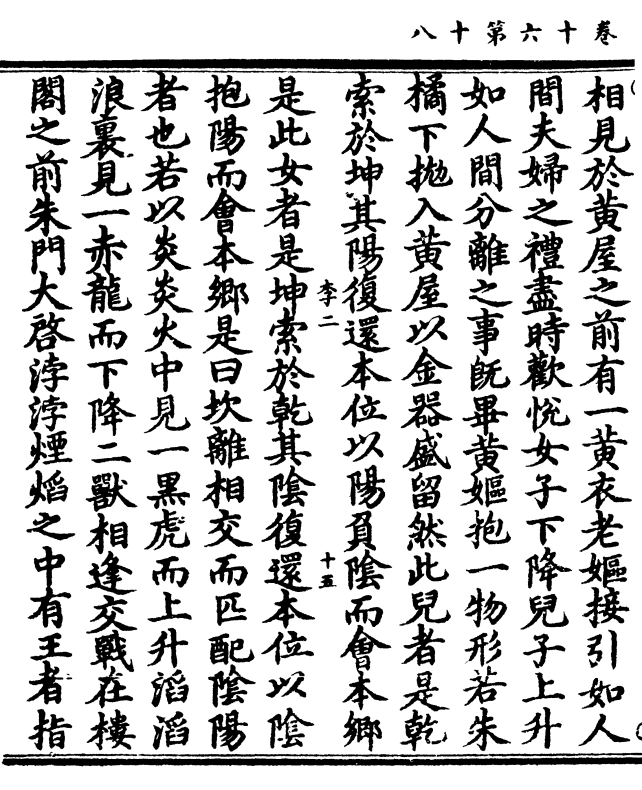 卷十六第十八
相見於黄屋之前有一黄衣老嫗接引如人
間夫婦之禮盡時歡悅女子下降兒子上升
如人間分離之事旣畢黄嫗抱一物形若朱
橘下拋入黄屋以金器盛留然此兒者是乾
索於坤其陽復還本位以陽負陰而會本鄉
李二
十五
是此女者是坤索於乾其陰復還本位以陰
抱陽而會本鄉是曰坎離相交而匹配陰陽
者也若以炎炎火中見一黒虎而上升滔滔
浪裏見一赤龍而下降二獸相逢交戰在樓
閣之前朱門大啓浡浡煙焰之中有王者指